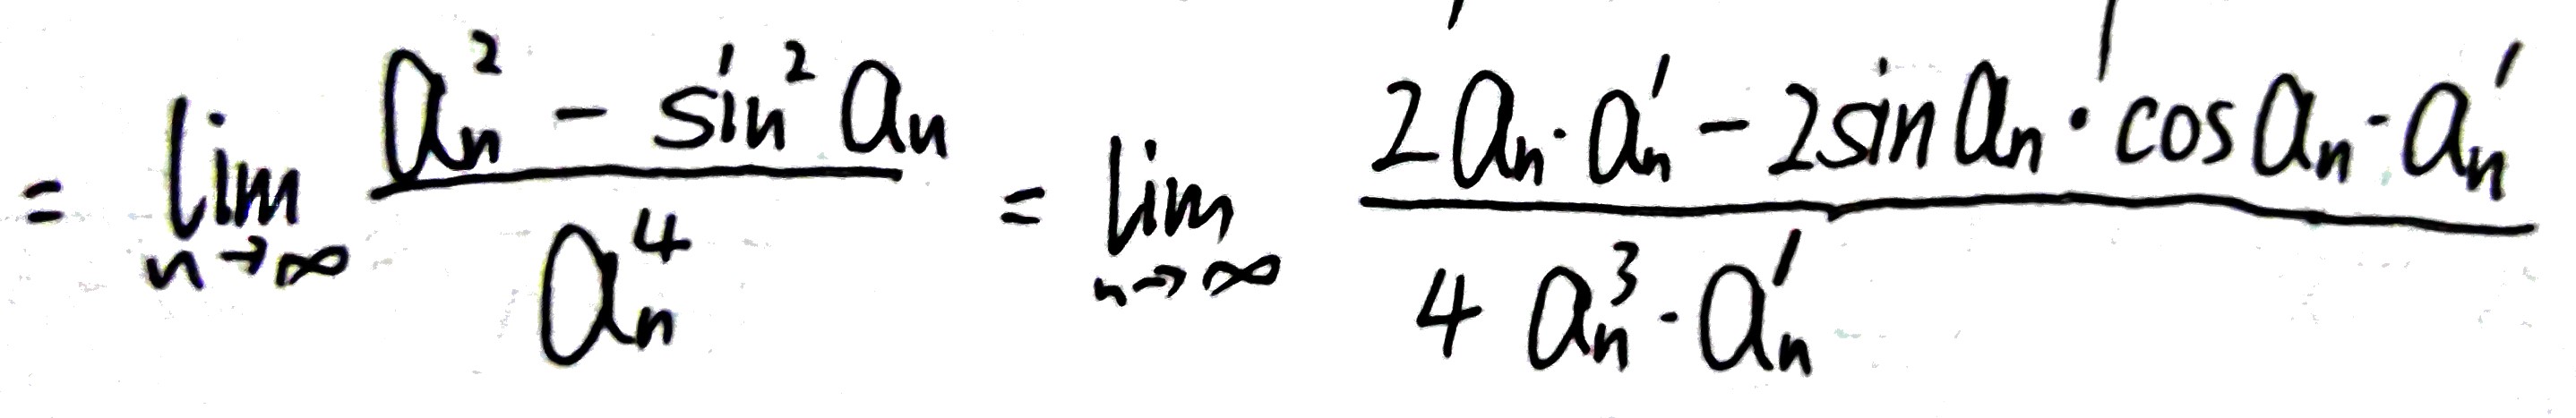 $= \lim_{n \to \infty} \frac{a_n^2 - \sin^2 a_n}{a_n^4} = \lim_{n \to \infty} \frac{2a_n \cdot a_n' - 2\sin a_n \cdot \cos a_n \cdot a_n'}{4 a_n^3 \cdot a_n'}$